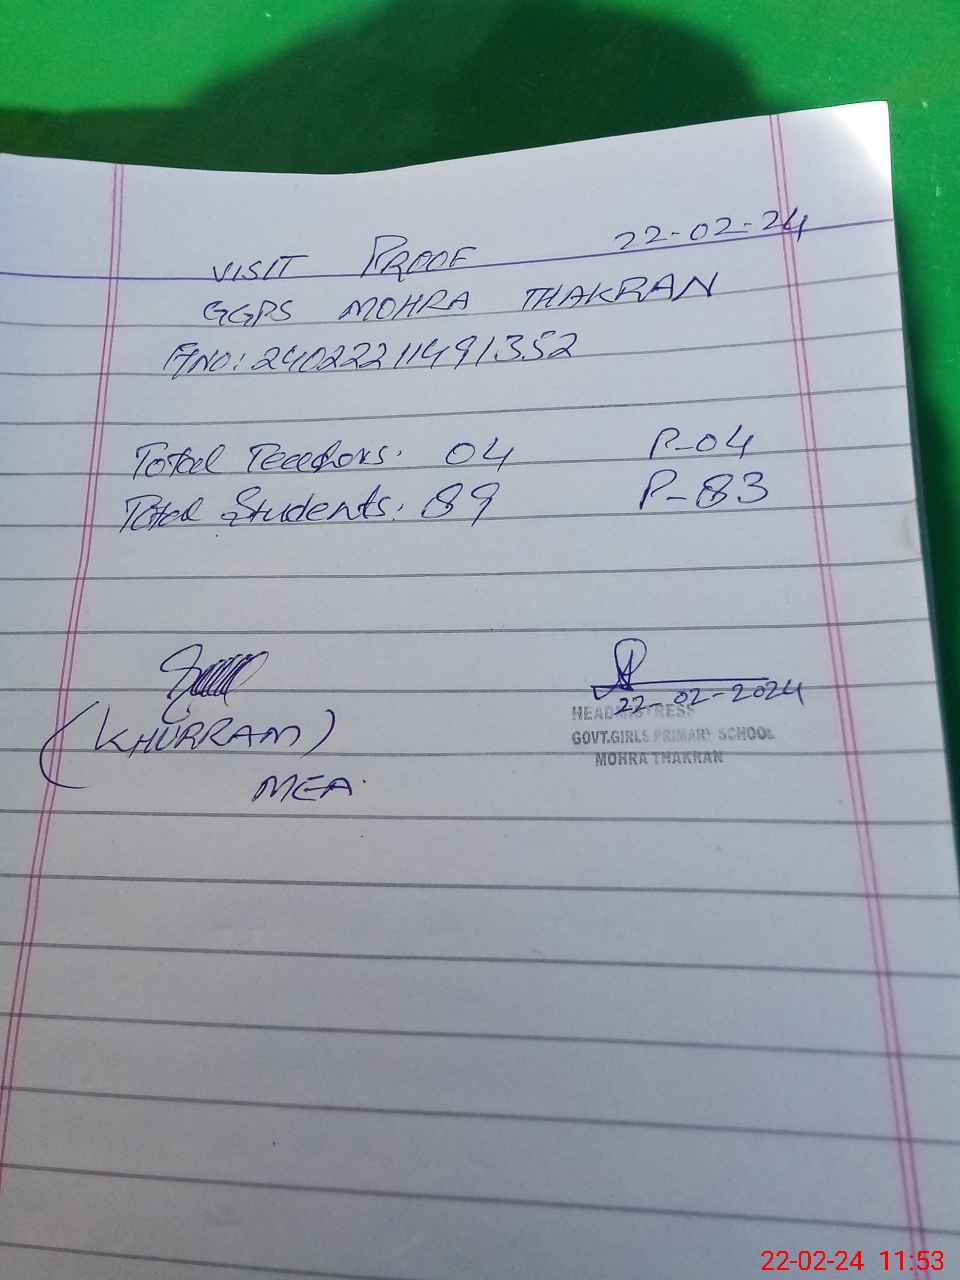 VISIT PROOF 22-02-24
GGPS MOHRA THAKRAN
A/NO: 24022211491352
Total Teachers: 04 P-04
Total Students: 89 P-83
22-02-2024
(KHURRAM)
MEA.
HEADMISTRESS
GOVT.GIRLS PRIMARY SCHOOL
MOHRA THAKRAN
22-02-24 11:53